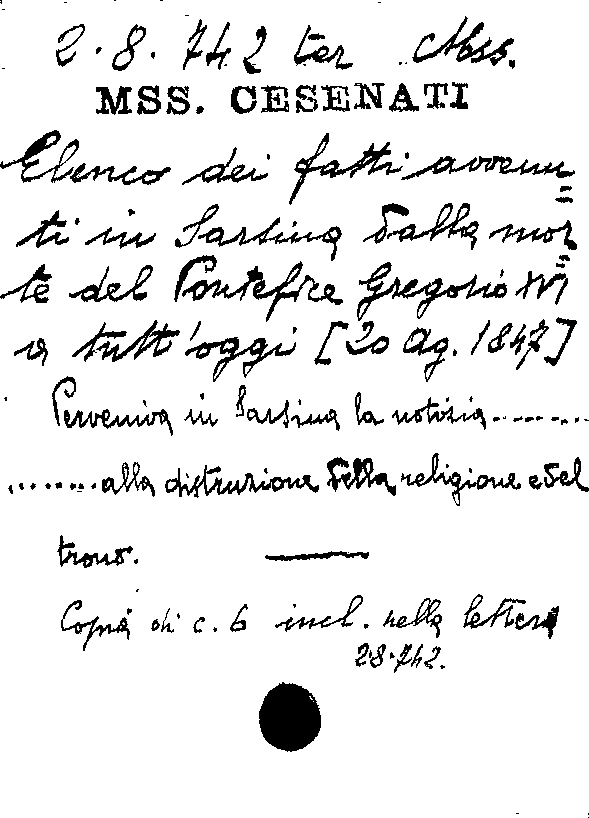 2.8.742 ter Mss.
MSS. CESENATI
Elenco dei fatti avvenu=
ti in Sarsina dalla mor=
te del Pontefice Gregorio XVI
a tutt'oggi [20 Ag. 1847]
Perveniva in Sarsina la notizia.........
.........alla distruzione della religione e del
trono. ———
Copia di c. 6 incl. nella lettera
2.8.742.